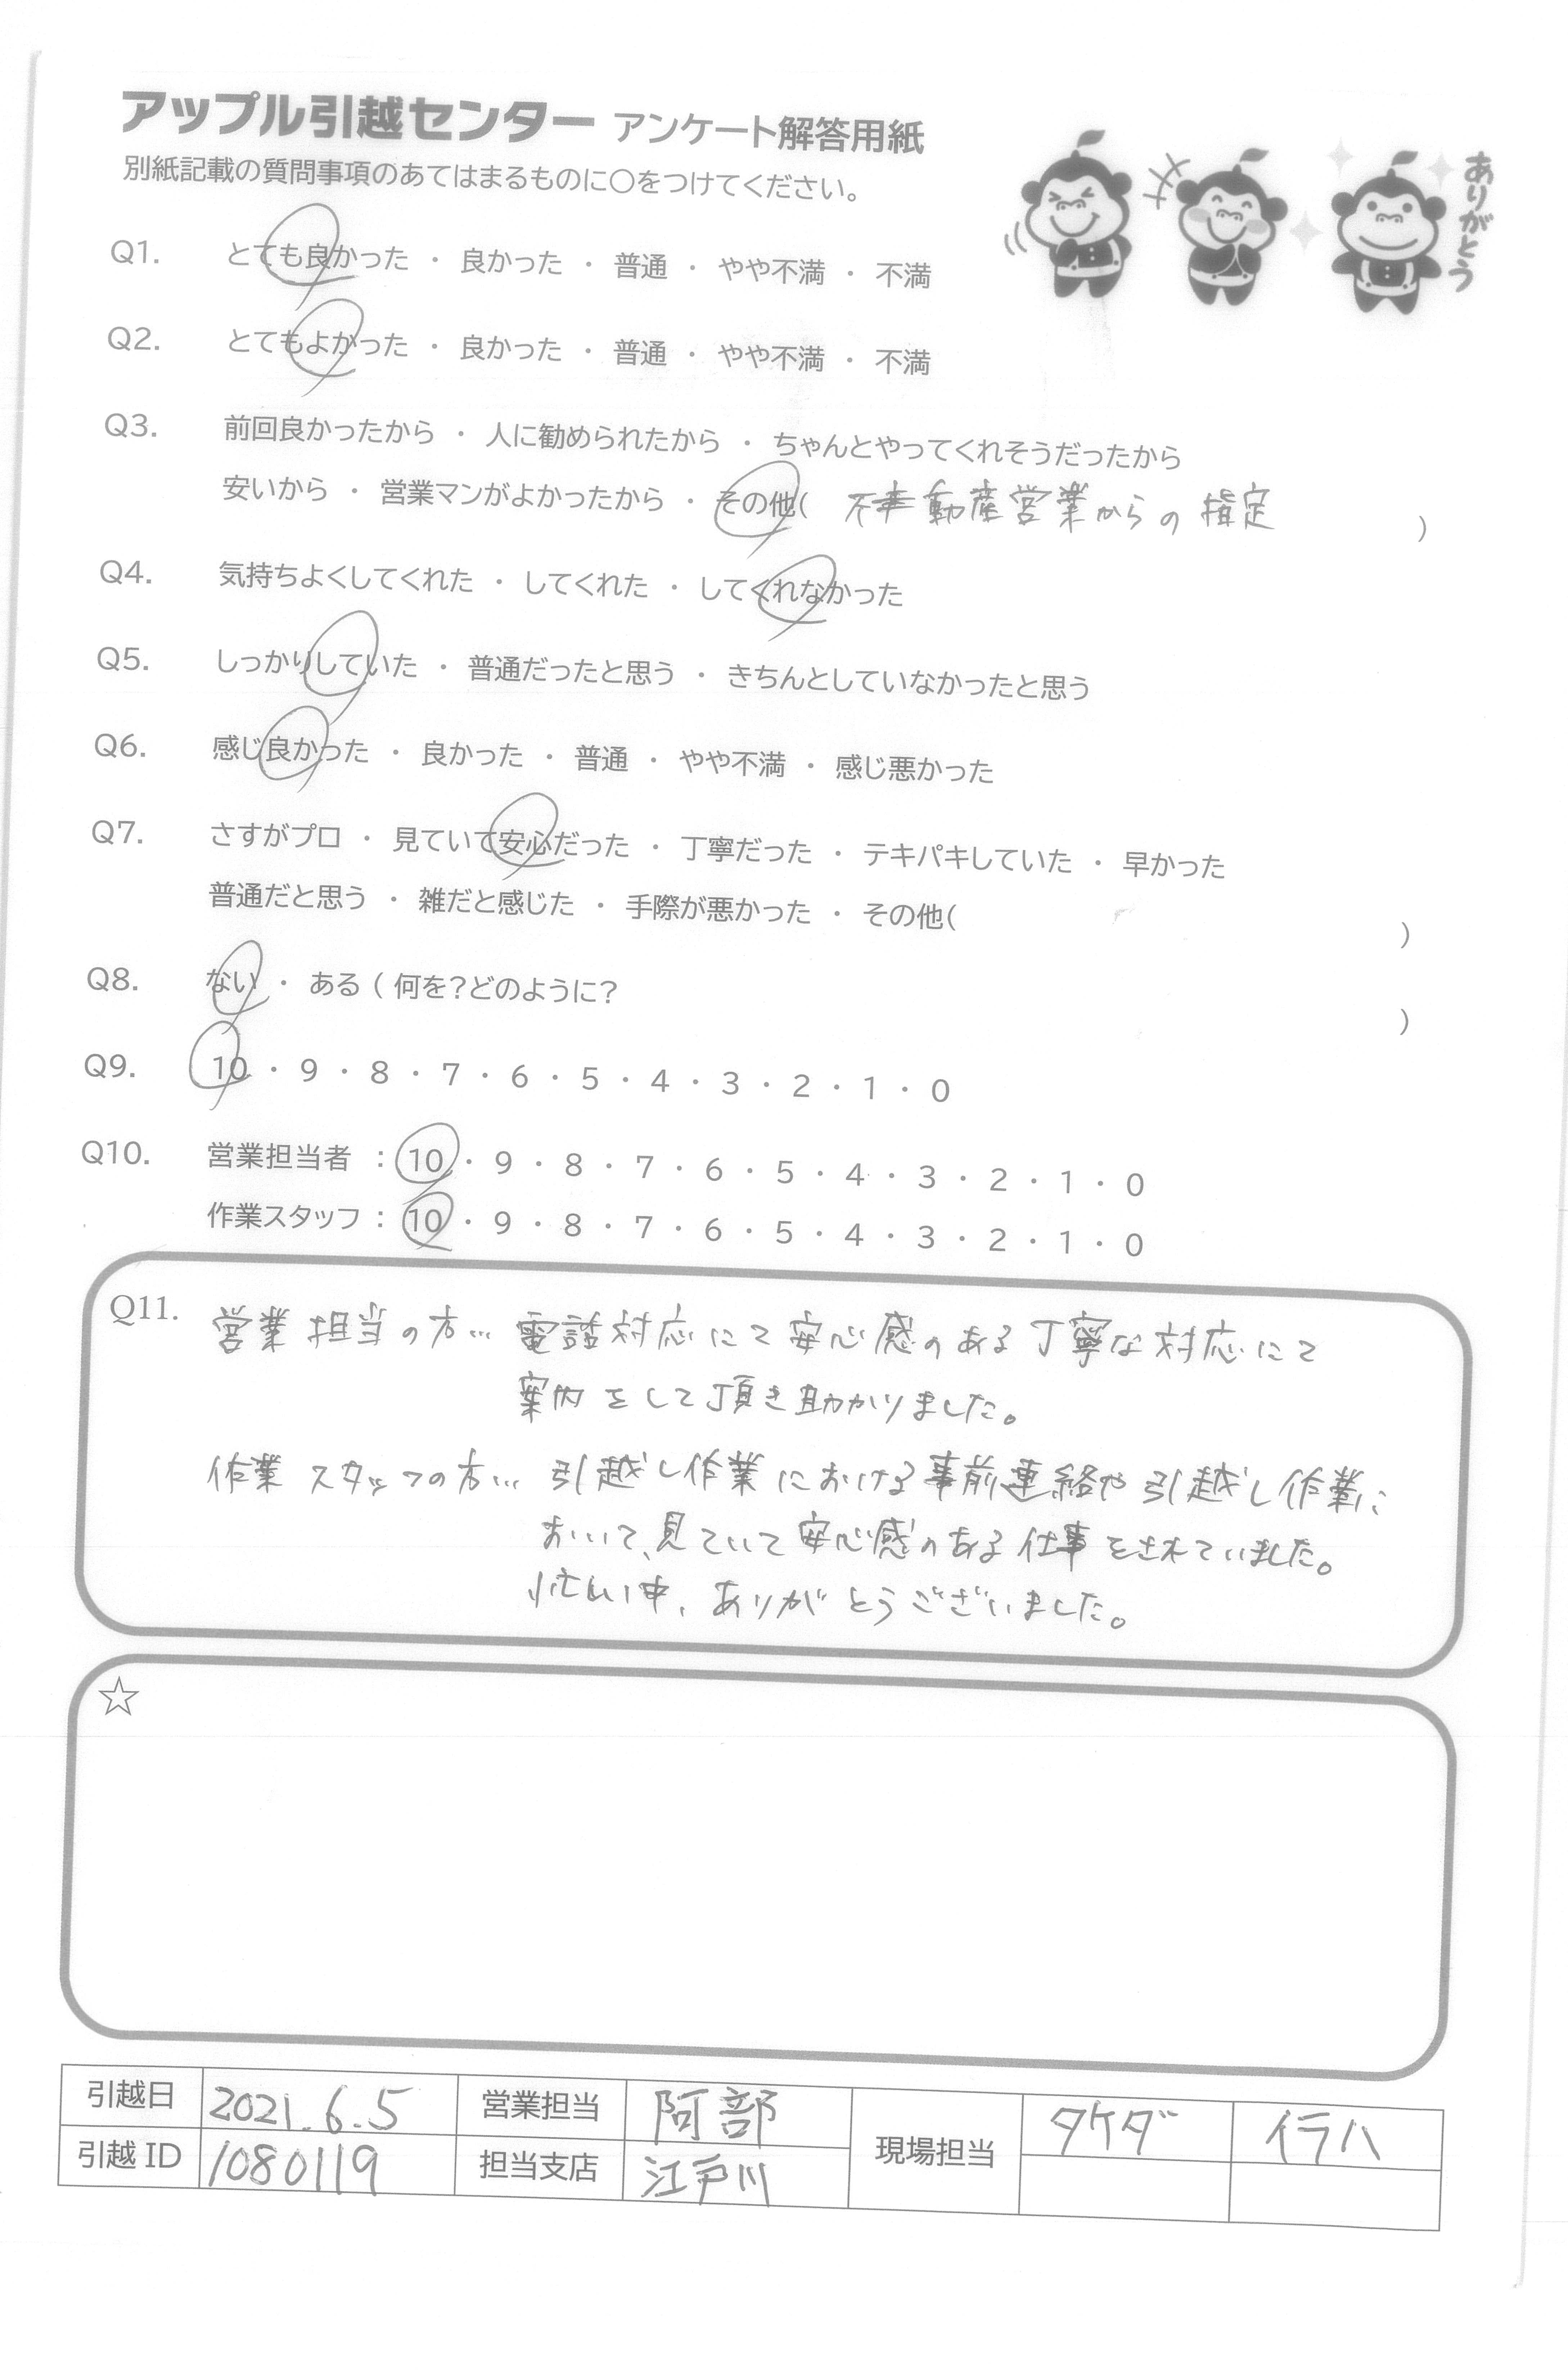 アップル引越センター アンケート解答用紙
別紙記載の質問事項のあてはまるものに○をつけてください。
ありがとう
Q1. とても良かった ・ 良かった ・ 普通 ・ やや不満 ・ 不満
Q2. とてもよかった ・ 良かった ・ 普通 ・ やや不満 ・ 不満
Q3. 前回良かったから ・ 人に勧められたから ・ ちゃんとやってくれそうだったから
安いから ・ 営業マンがよかったから ・ その他( 不動産営業からの指定 )
Q4. 気持ちよくしてくれた ・ してくれた ・ してくれなかった
Q5. しっかりしていた ・ 普通だったと思う ・ きちんとしていなかったと思う
Q6. 感じ良かった ・ 良かった ・ 普通 ・ やや不満 ・ 感じ悪かった
Q7. さすがプロ ・ 見ていて安心だった ・ 丁寧だった ・ テキパキしていた ・ 早かった
普通だと思う ・ 雑だと感じた ・ 手際が悪かった ・ その他( )
Q8. ない ・ ある ( 何を?どのように? )
Q9. 10 ・ 9 ・ 8 ・ 7 ・ 6 ・ 5 ・ 4 ・ 3 ・ 2 ・ 1 ・ 0
Q10. 営業担当者 : 10 ・ 9 ・ 8 ・ 7 ・ 6 ・ 5 ・ 4 ・ 3 ・ 2 ・ 1 ・ 0
作業スタッフ : 10 ・ 9 ・ 8 ・ 7 ・ 6 ・ 5 ・ 4 ・ 3 ・ 2 ・ 1 ・ 0
Q11. 営業担当の方… 電話対応にて安心感のある丁寧な対応にて
案内をして頂き助かりました。
作業スタッフの方… 引越し作業における事前連絡や引越し作業に
おいて、見ていて安心感のある仕事をされていました。
忙しい中、ありがとうございました。
☆
引越日 2021.6.5 営業担当 阿部 現場担当 タケダ イラハ
引越ID 1080119 担当支店 江戸川